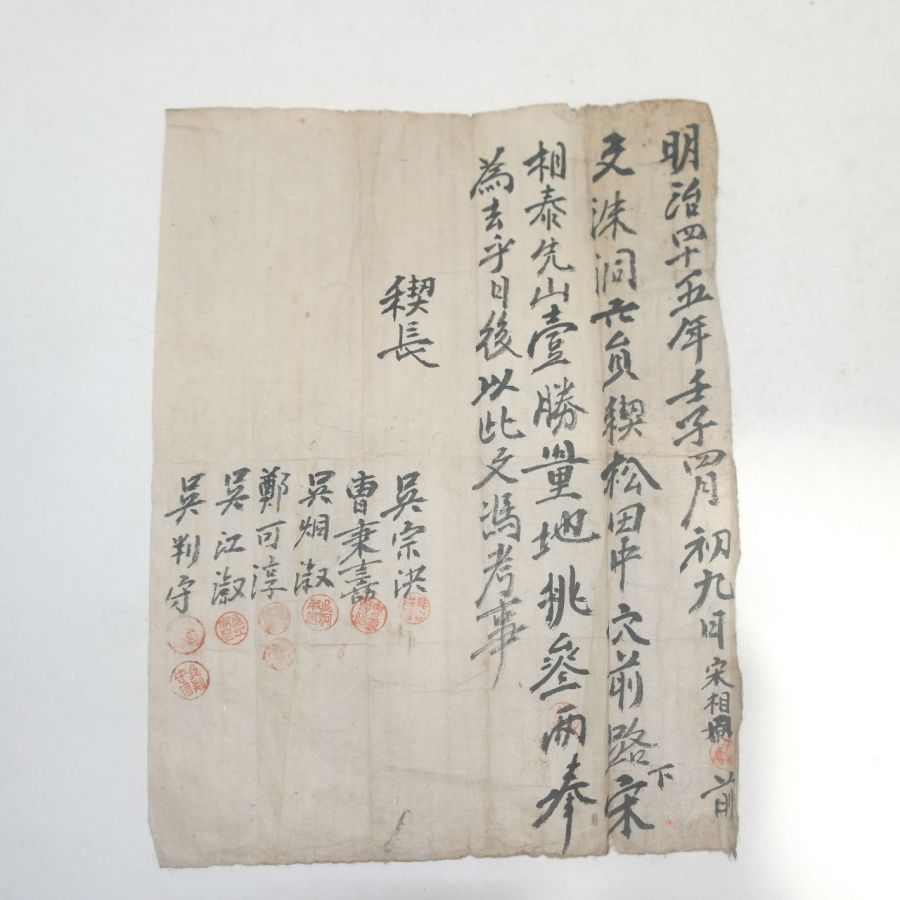 明治四十五年壬子四月初九日宋相 前
文洙洞六員稧松田中穴前路下宋
相泰先山壹勝量地桃叄兩奉
為去乎日後以此文馮考事
稧長
吳宗洪
曹秉嘉
吳炯淑
鄭可淳
吳江淑
吳判守